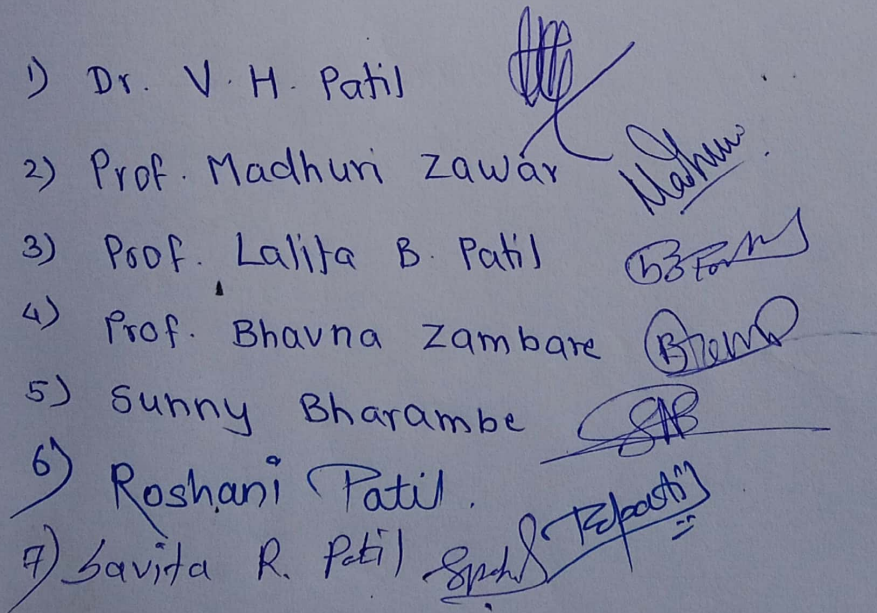 1) Dr. V. H. Patil
2) Prof. Madhuri Zawar
3) Prof. Lalita B. Patil
4) Prof. Bhavna Zambare
5) Sunny Bharambe
6) Roshani Patil.
7) Savita R. Patil